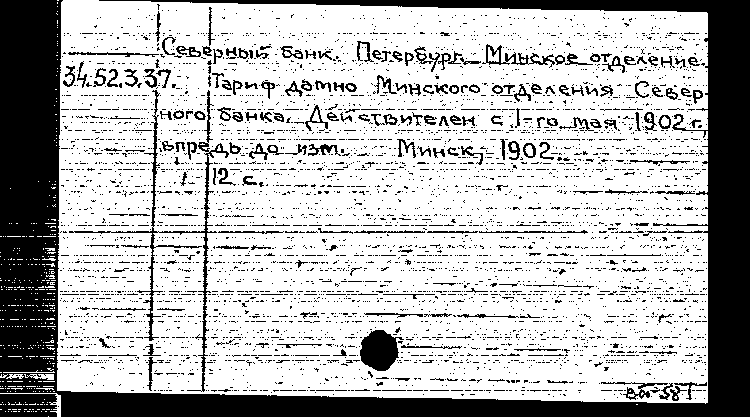 Северный банк. Петербург. Минское отделение.
34.52.3.37. Тариф Минского отделения Север-
ного банка. Действителен с 1-го мая 1902 г.
впредь до изм. Минск, 1902.
12 с.